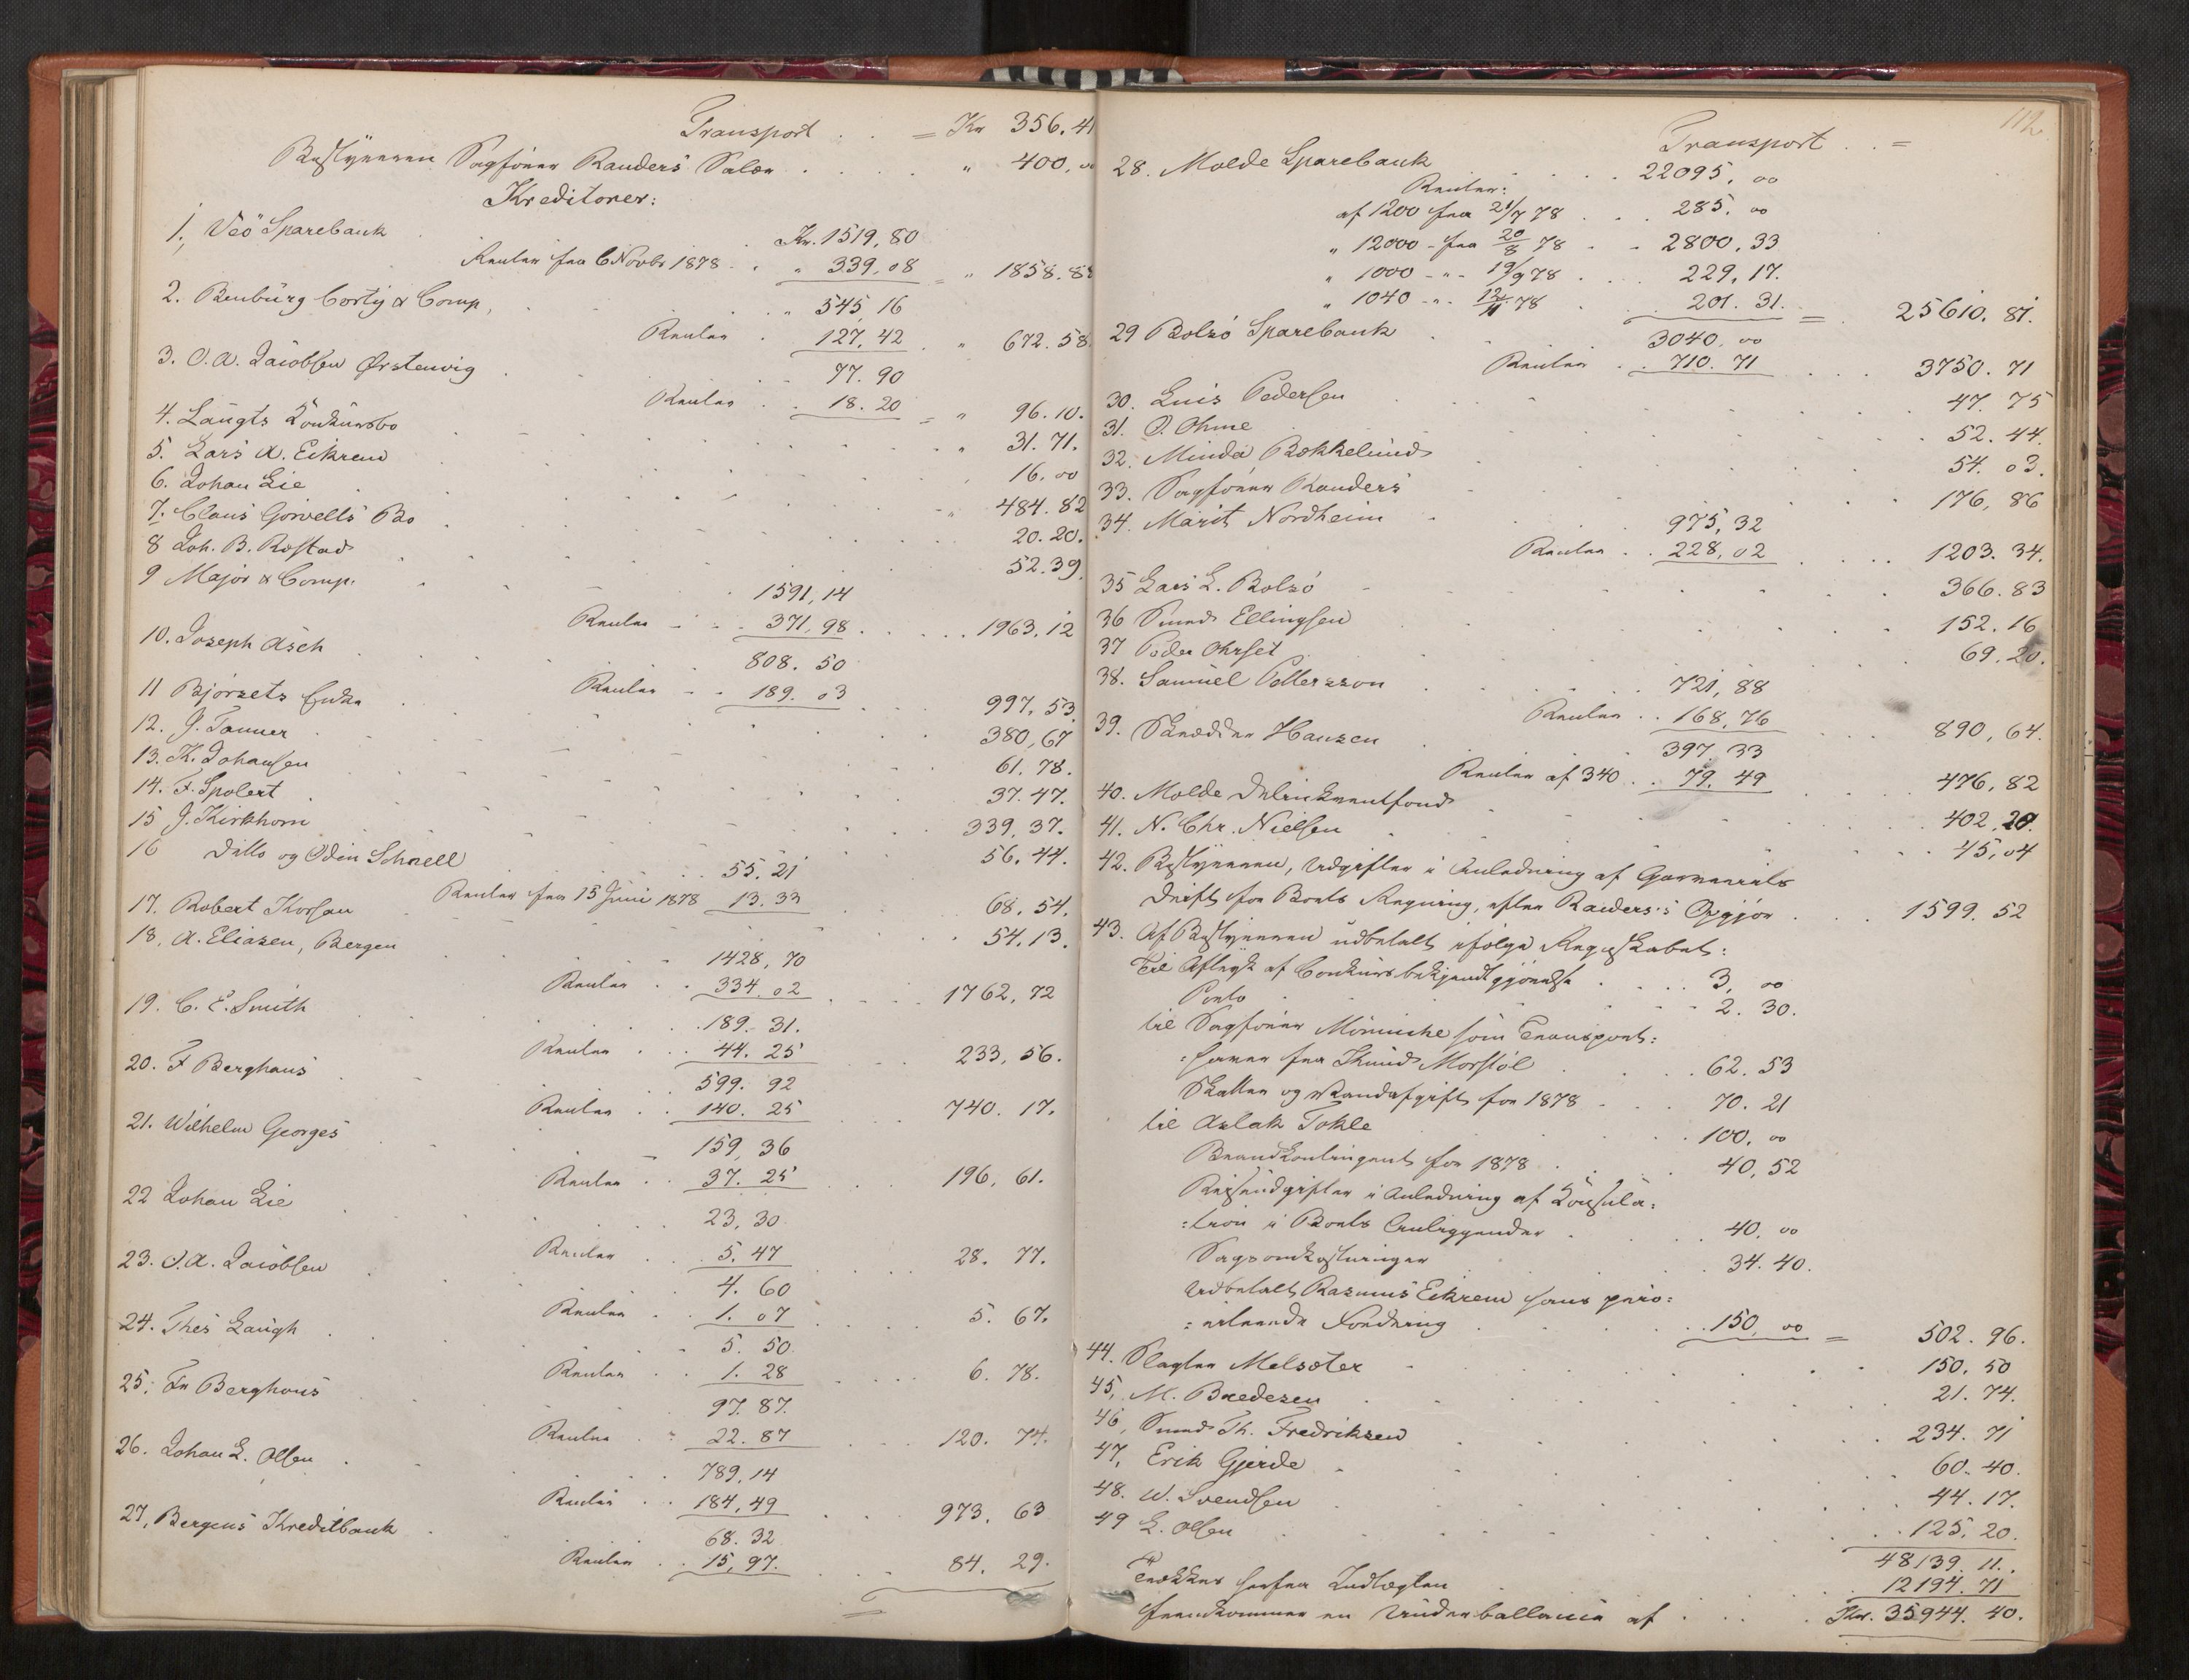 Transport . . = Kr 356.41
Bestyreren Sagfører Randers Salær . . . . " 400,00
Kreditorer:
1. Veö Sparebank . . Kr. 1519,80
Renter fra 6 Novbr 1878 . . " 339,08 = " 1858.88
2. Benburg Corty & Comp, . . " 545,16
Renter . 127,42 . " 672.58
3. O. A. Jacobsen Ørstenvig . . 77.90
Renter . . 18.20 = " 96.10.
4. Laugts Konkursbo . . " 31.71.
5. Lars A. Eikrem . . " 16.00
6. Johan Lie . . " 484.82
7. Claus Gørvells Bo . . 20.20.
8 Joh. B. Rostad . . 52.39.
9 Major & Comp. . . 1591,14
Renter - . . 371,98 . . . . 1963.12
10. Joseph Asch . . 808.50
Renter - - 189.03 . . 997,53.
11 Bjørsets Enke . . 380,67
12. J. Tanner . . 61.78.
13. K. Johansen . . 37.47.
14. F. Spolert . . 339.37.
15 J. Kirkhorn . . 56.44.
16 Ditto og Odin Schnell . . 55.21
Renter fra 15 Juni 1878 13.33 . . 68.54.
17. Robert Korsan . . 54.13.
18, A. Eliasen, Bergen . . 1428,70
Renter . . 334.02 . . 1762,72
19. C. E. Smith . . 189.31.
Renter . . 44.25 . . 233,56.
20. F Berghaus . . 599.92
Renter . . 140.25 740.17.
21. Wilhelm Georges . . 159,36
Renter . . 37.25 . . 196,61.
22 Johan Lie . . 23,30
Renter . . 5.47 . . 28.77.
23. O. A. Jacobsen . . 4.60
Renter . . 1.07 . . 5.67.
24. Ths Laugh . . 5.50
Renter . . 1.28 . . 6.78.
25. Fr Berghous . . 97.87.
Renter . . 22.87 . . 120.74.
26. Johan L. Olsen . . 789.14
Renter . . 184,49 . . 973.63
27, Bergens Kreditbank . . 68.32
Renter . . 15,97. . . 84.29.
112
Transport . . =
28. Molde Sparebank . . . . 22095,00
Renter:
af 1200 fra 21/7 78 . . 285.00
" 12000 - fra 20/8 78 . - 2800.33
" 1000 - " - 19/9 78 . . 229,17.
" 1040 - " - 12/11 78 . . 201.31. = 25610.81.
29 Bolsö Sparebank . . 3040.00
Renter . . 710.71 . . . 3750.71
30. Luis Pedersen . . 47.75
31. O. Ohme . . 52.44.
32. Minda Bækkelund . . 54.03.
33. Sagfører Randers . . 176,86
34. Marit Nordheim . . 975,32
Renter . . 228,02 . . . . 1203.34.
35 Lars L. Bolsö . . 366.83
36 Smed Ellingsen . . 152.16
37 Peder Ohrset . . 69.20.
38. Samuel Pettersson . . 721,88
Renter . . 168,76 . . . 890,64.
39. Skrædder Hansen . . 397.33
Renter af 340 . . 79.49 . . . 476,82
40. Molde Delinkventfond . . 402,20.
41. N. Chr. Nielsen . . 45,04
42. Bestyreren, Udgifter i Anledning af Garveriets
Drift for Boets Regning, efter Randers's Opgjør . . . 1599.52
43. Af Bestyreren udbetalt ifølge Regnskabet:
til Aftryk af Conkursbekjendtgjørelse . . . . 3,00
Porto . . 2.30.
til Sagfører Mönniche som Transport:
:haver fra Knud Morstöl . . . 62.53
Skatter og Vandafgift for 1878 . . 70.21
til Aslak Tokle . . 100,00
Brandkontingent for 1878 . . 40,52
Reiseudgifter i Anledning af Konsula:
:tion i Boets Anliggender . . 40,00
Sagsomkostninger . . 34.40.
Udbetalt Rasmus Eikrem hans prio:
:riterede Fordring . . 150,00 = 502.96.
44. Slagter Melsæter . . 150.50
45, M. Bredesen . . 21.74.
46, Smed Th. Fredriksen . . 234.71
47, Erik Gjerde . . 60.40.
48. W. Svendsen . . 44.17.
49 L. Olsen . . 125,20.
48139.11.
Trækkes herfra Indtægten . . 12194.71
fremkommer en Underballance af . . . . Kr. 35944.40.